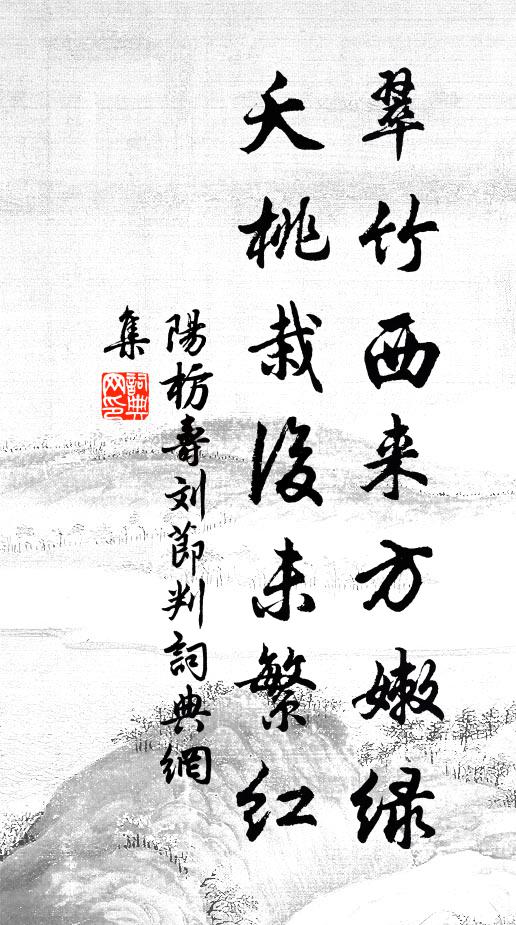 翠竹西来方嫩绿
夭桃栽后未繁红
陽枋壽刘節判詞典網
集
詞典网印